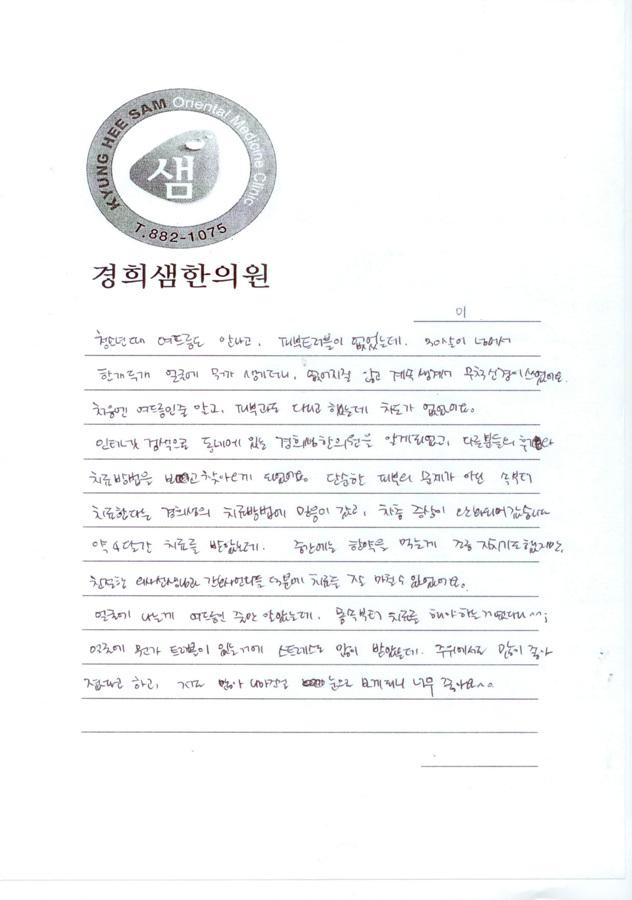 KYUNG HEE SAM Oriental Medicine Clinic
샘
T.882-1075
경희샘한의원
이
청소년때 여드름도 안나고, 피부트러블이 없었는데. 30살이 넘어서
한개두개 얼굴에 뭐가 생기더니, 없어지질 않고 계속 생겨서 무척신경이쓰였어요.
처음엔 여드름인줄 알고, 피부과도 다니고 했는데 차도가 없었어요.
인터넷 검색으로 동네에 있는 경희샘한의원을 알게되었고, 다른분들의 후기와
치료방법을 보고 찾아오게 되었어요. 단순한 피부의 문제가 아닌 속부터
치료한다는 경희샘의 치료방법에 믿음이 갔고, 차츰 증상이 완화되어갔습니다
약 4달간 치료를 받았는데. 중간에는 한약을 먹는게 조금 지치기도 했지만,
친절한 의사선생님과 간호사언니들 덕분에 치료를 잘 마칠수 있었어요.
얼굴에 나는게 여드름인 줄만 알았는데. 몸속부터 치료를 해야하는거였다니^^;
얼굴에 뭔가 트러블이 있는거에 스트레스도 많이 받았는데. 주위에서도 많이 좋아
졌다고 하고, 저도 많이 나아진걸 눈으로 보게되니 너무 좋아요^^